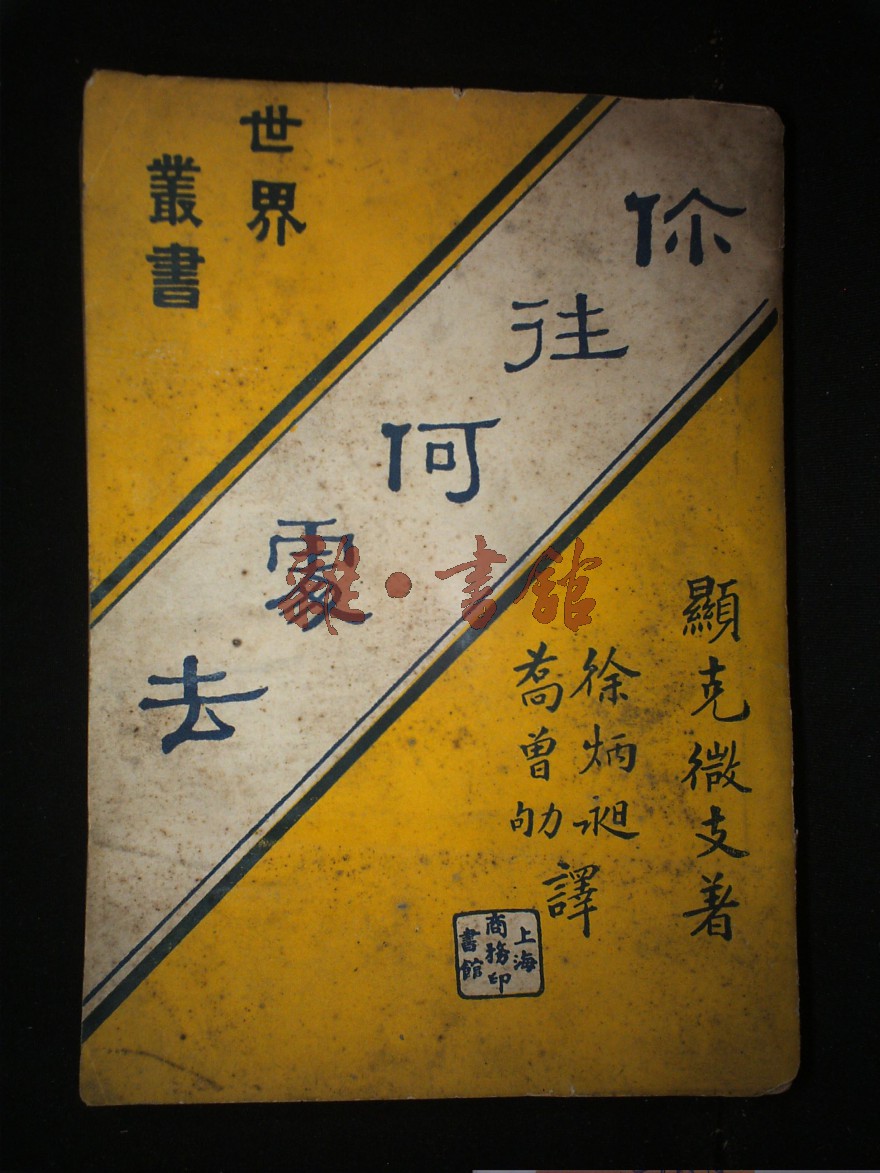 世界
叢書
你往何處去
顯克微支著
徐炳昶
喬曾劬
譯
上海
商務印
書館
書館